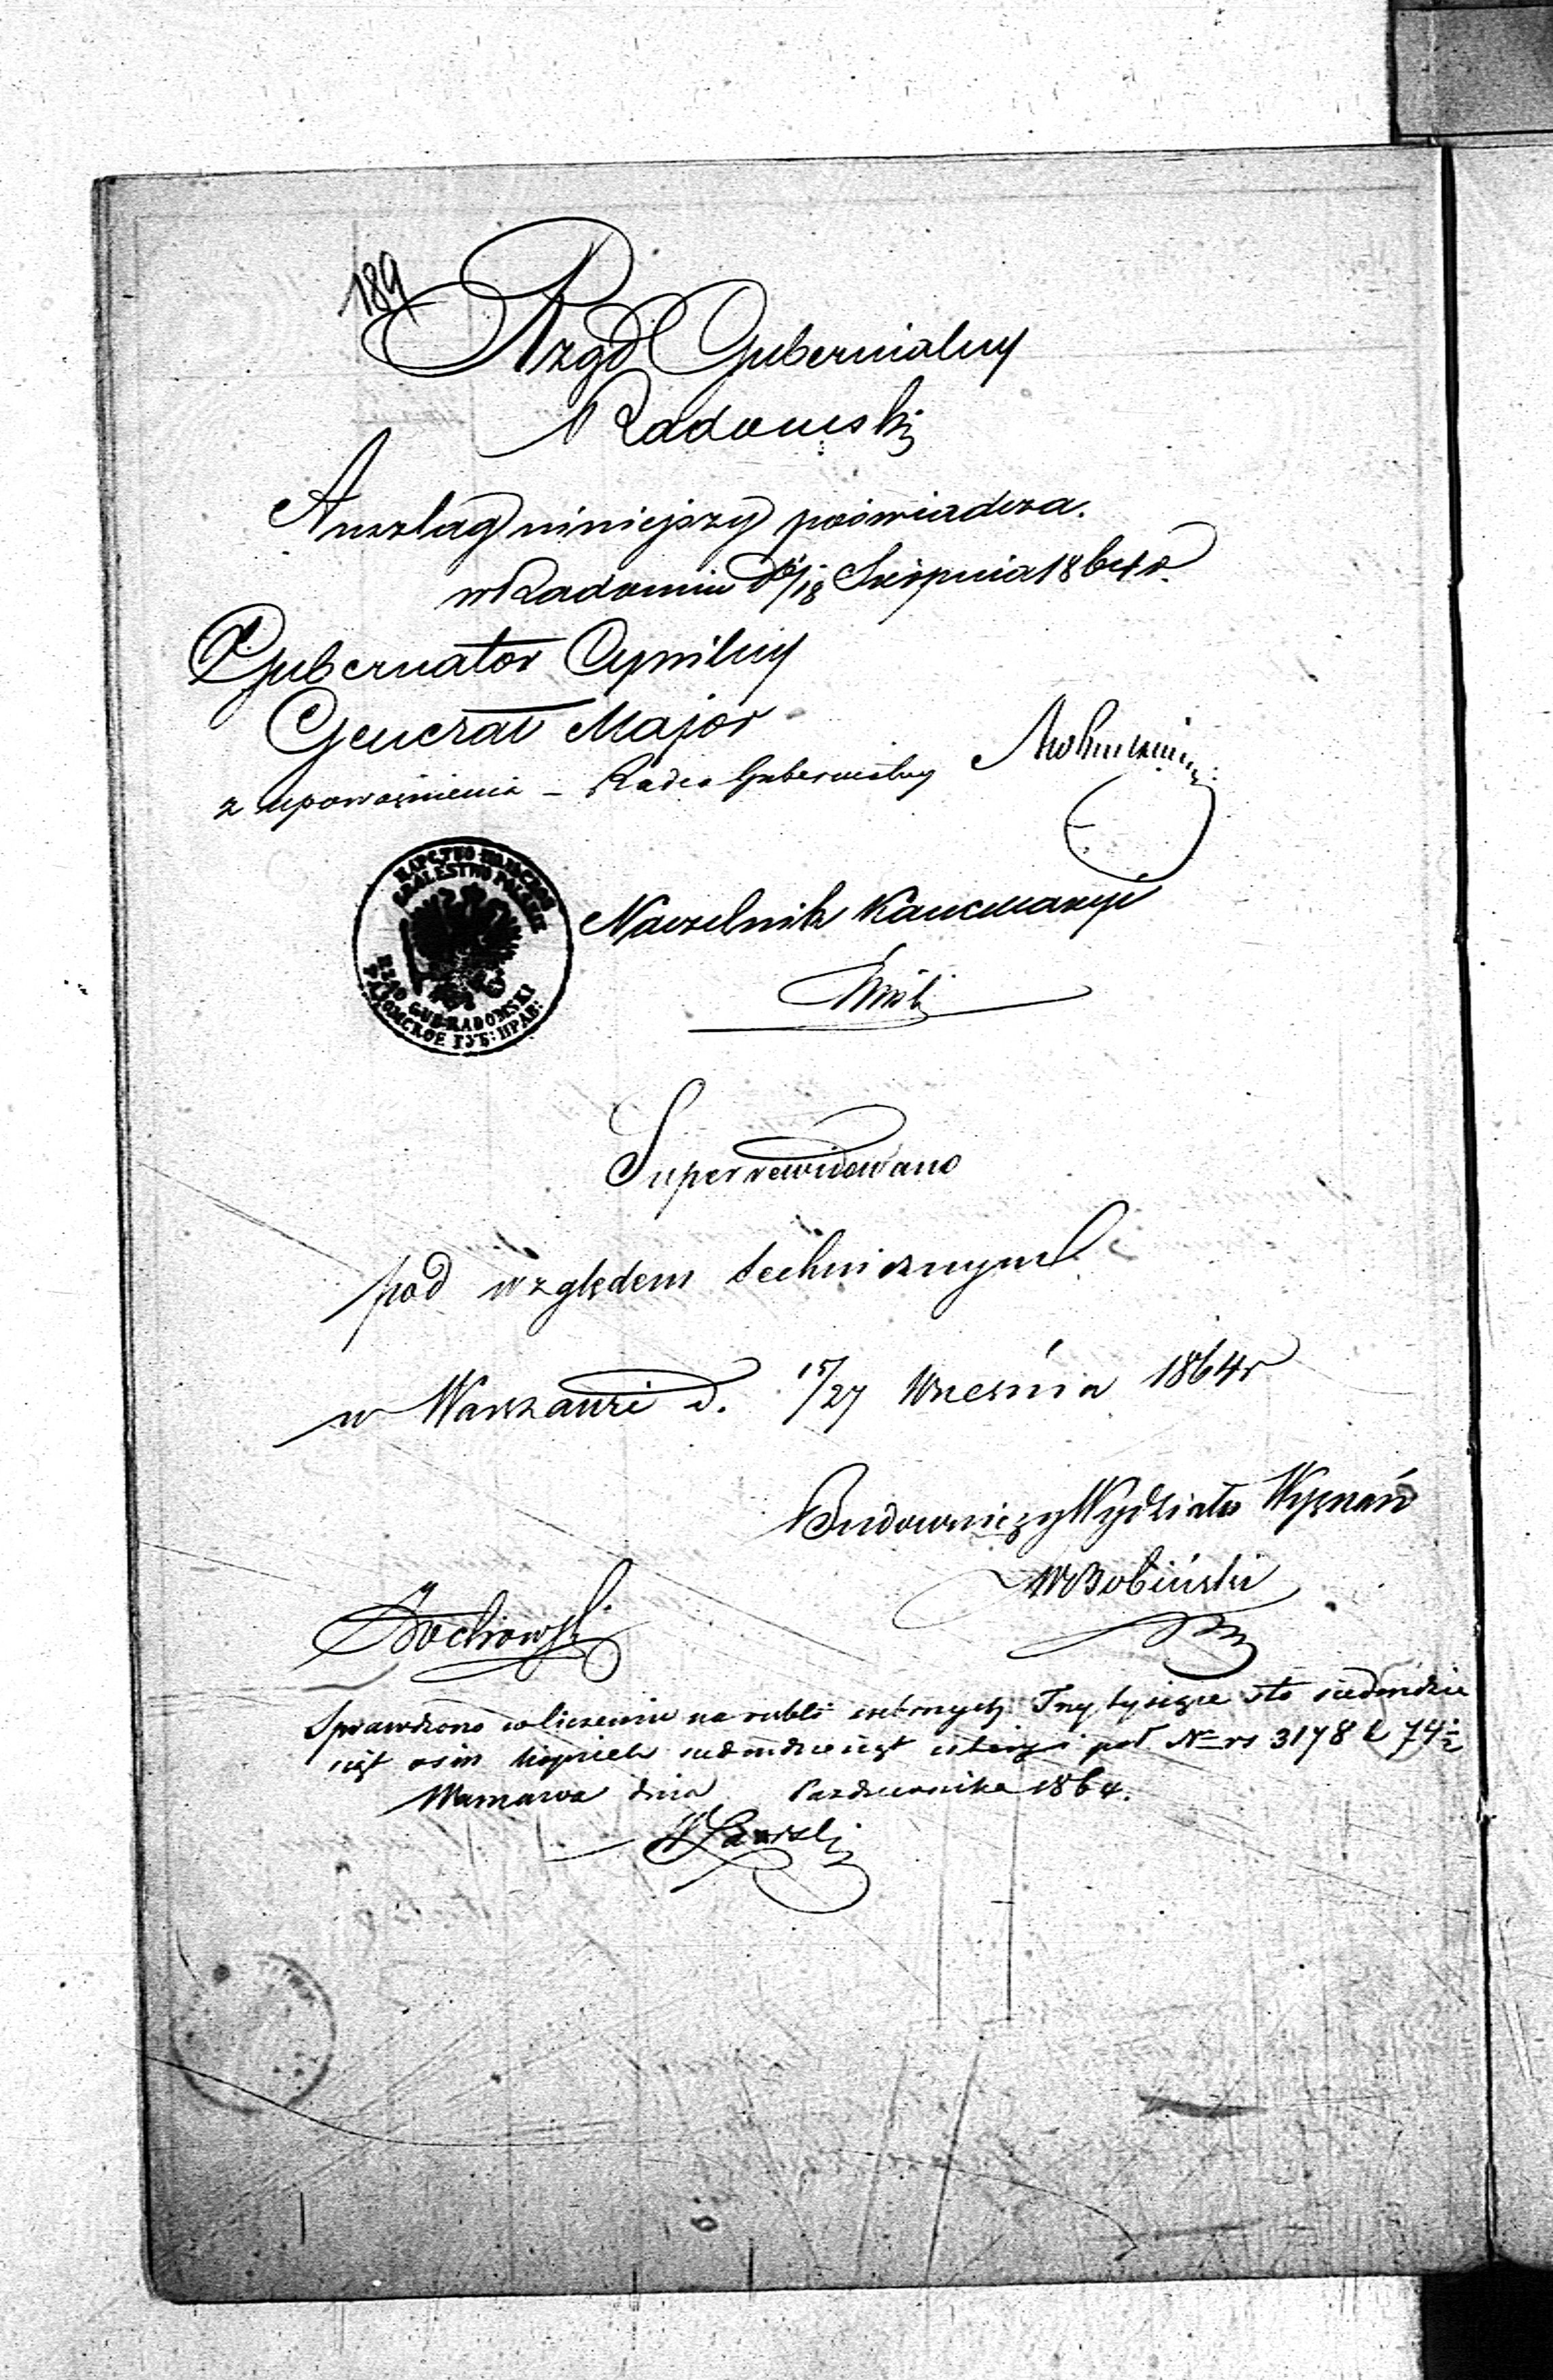 189
Rząd Gubernialny
Radomski
Anszlag niniejszy poświadcza.
w Radomiu d 6/18 Sierpnia 1864 r.
Gubernator Cywilny
Generał Major
z upoważnienia - Radca Gubernialny
ЦАРСТВО ПОЛЬСКОЕ
KRÓLESTWO POLSKIE
RZĄD GUB: RADOMSKI
РАДОМСКОЕ ГУБ: ПРАВ:
Naczelnik Kancellaryi
Superrewidowano
pod względem technicznym
w Warszawie d. 15/27 Września 1864 r
Budowniczy Wydziału Wyznań
W Bobiński
Żochowski
Sprawdzono w liczeniu na rubli srebrnych Trzy tysiące sto siedmdzie
siąt osim kopiek siedmdziesiąt cztery i pół № rs 3178 k 74½
Warszawa dnia Października 1864.